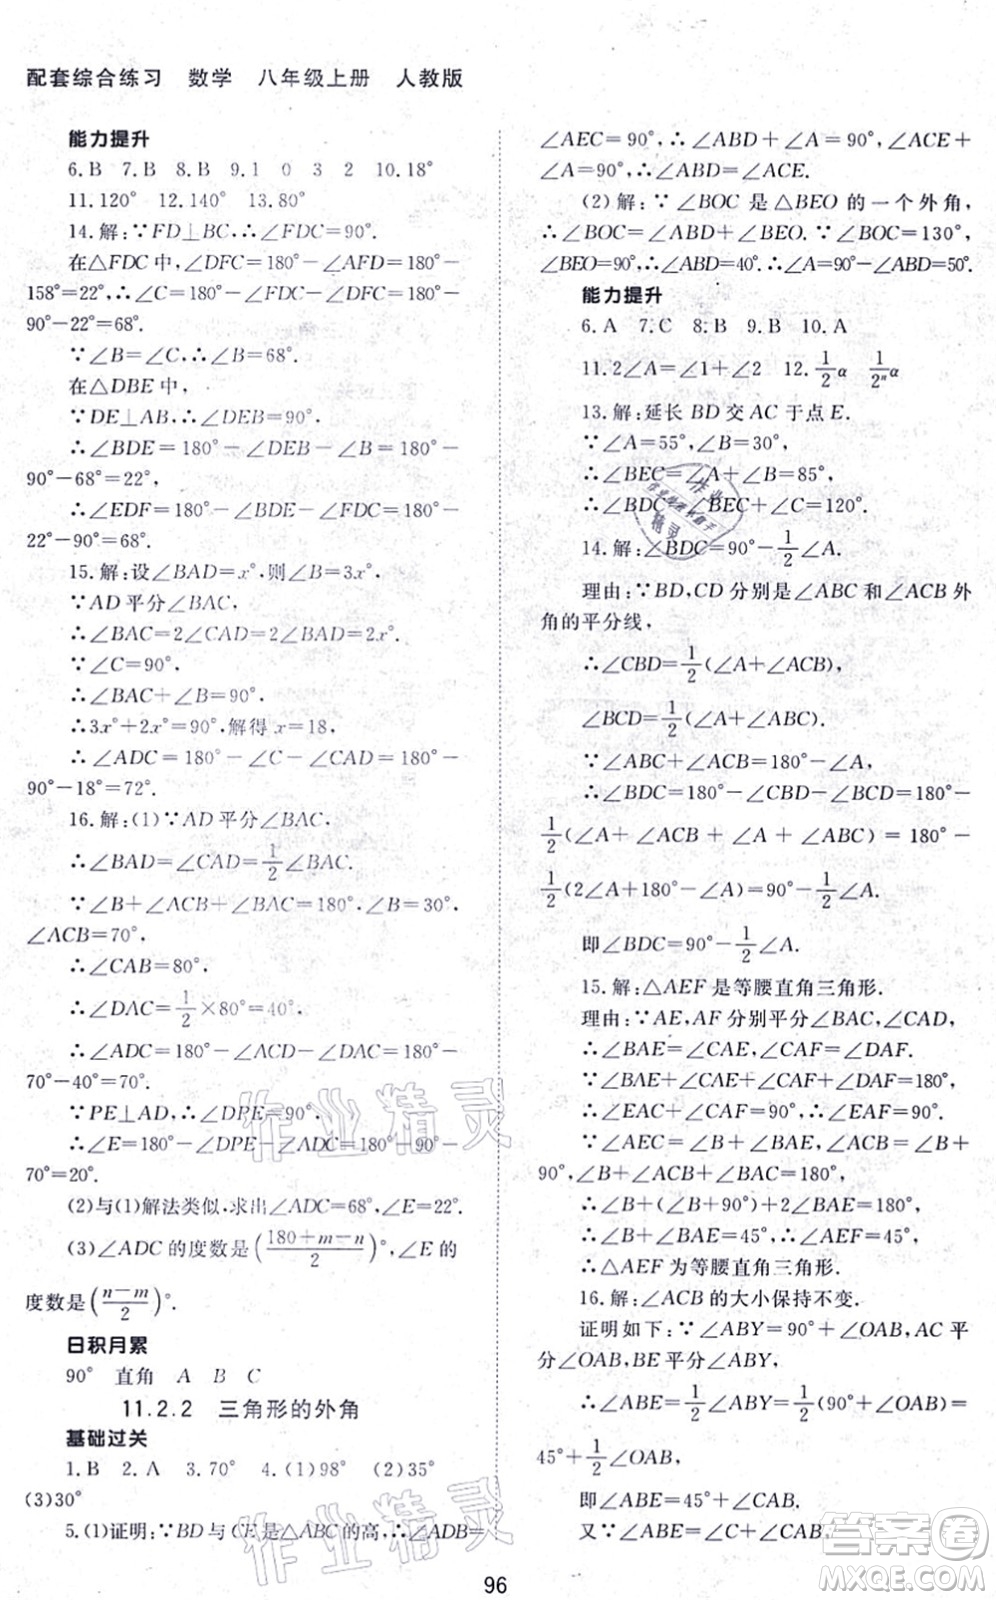 配套综合练习 数学 八年级上册 人教版
能力提升
6.B 7.B 8.B 9.1 0 3 2 10.18°
11.120° 12.140° 13.80°
14.解:∵FD⊥BC,∴∠FDC=90°.
在△FDC中,∠DFC=180°-∠AFD=180°-
158°=22°,∴∠C=180°-∠FDC-∠DFC=180°-
90°-22°=68°.
∵∠B=∠C,∴∠B=68°.
在△DBE中,
∵DE⊥AB,∴∠DEB=90°.
∴∠BDE=180°-∠DEB-∠B=180°-
90°-68°=22°,
∴∠EDF=180°-∠BDE-∠FDC=180°-
22°-90°=68°.
15.解:设∠BAD=x°,则∠B=3x°,
∵AD平分∠BAC,
∴∠BAC=2∠CAD=2∠BAD=2x°.
∵∠C=90°,
∴∠BAC+∠B=90°,
∴3x°+2x°=90°,解得x=18,
∴∠ADC=180°-∠C-∠CAD=180°-
90°-18°=72°.
16.解:(1)∵AD平分∠BAC,
∴∠BAD=∠CAD=1/2∠BAC.
∵∠B+∠ACB+∠CAB=180°,∠B=30°,
∠ACB=70°,
∴∠CAB=80°,
∴∠DAC=1/2×80°=40°,
∴∠ADC=180°-∠ACB-∠DAC=180°-
70°-40°=70°.
∵PE⊥AD,∴∠DPE=90°,
∴∠E=180°-∠DPE-∠ADC=180°-90°-
70°=20°.
(2)与(1)解法类似,求出∠ADC=68°,∠E=22°.
(3)∠ADC的度数是((180+m-n)/2)°,∠E的
度数是((n-m)/2)°.
日积月累
90° 直角 A B C
11.2.2 三角形的外角
基础过关
1.B 2.A 3.70° 4.(1)98° (2)35°
(3)30°
5.(1)证明:∵BD与CE是△ABC的高,∴∠ADB=
∠AEC=90°,∴∠ABD+∠A=90°,∠ACE+
∠A=90°,∴∠ABD=∠ACE.
(2)解:∵∠BOC是△BEO的一个外角,
∴∠BOC=∠ABD+∠BEO.∵∠BOC=130°,
∠BEO=90°,∴∠ABD=40°.∴∠A=90°-∠ABD=50°.
能力提升
6.A 7.C 8.B 9.B 10.A
11.2∠A=∠1+∠2 12.1/2α 1/2ⁿα
13.解:延长BD交AC于点E.
∵∠A=55°,∠B=30°,
∴∠BEC=∠A+∠B=85°,
∴∠BDC=∠BEC+∠C=120°.
14.解:∠BDC=90°-1/2∠A.
理由:∵BD,CD分别是∠ABC和∠ACB外
角的平分线,
∴∠CBD=1/2(∠A+∠ACB),
∠BCD=1/2(∠A+∠ABC).
∵∠ABC+∠ACB=180°-∠A,
∴∠BDC=180°-∠CBD-∠BCD=180°-
1/2(∠A+∠ACB+∠A+∠ABC)=180°-
1/2(2∠A+180°-∠A)=90°-1/2∠A,
即∠BDC=90°-1/2∠A.
15.解:△AEF是等腰直角三角形.
理由:∵AE,AF分别平分∠BAC,∠CAD,
∴∠BAE=∠CAE,∠CAF=∠DAF.
∴∠BAE+∠DAF=90°,
∴∠EAC+∠CAF=∠EAF=90°.
∵∠AEF=∠B+∠BAE,∠ACB=
90°,∠B+∠ACB+∠BAC=180°,
∴∠B+(∠B+90°)+2∠BAE=180°,
∴∠B+∠BAE=45°,∴∠AEF=45°,
∴△AEF为等腰直角三角形.
16.解:∠ACB的大小保持不变.
证明如下:∵∠ABY=90°+∠OAB,AC平
分∠OAB,BE平分∠ABY,
∴∠ABE=1/2∠ABY=1/2(90°+∠OAB)=
45°+1/2∠OAB,
即∠ABE=45°+∠CAB.
又∵∠ABE=∠C+∠CAB,
96
作业精灵
作业精灵
答案圈
MXQE.COM